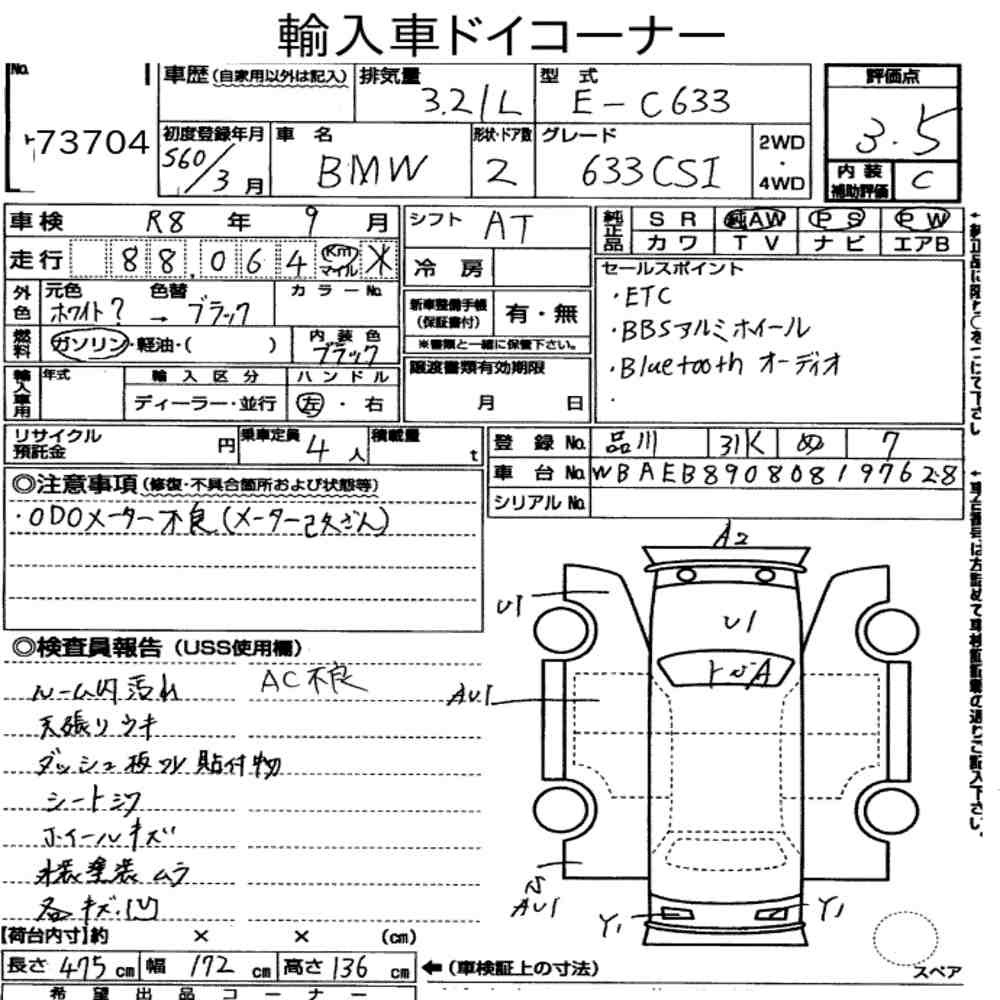 輸入車ドイコーナー
No. 73704
車歴(自家用以外は記入) 排気量 3.21L 型式 E-C633 評価点 3.5
初度登録年月 S60/3月 車名 BMW 形状・ドア数 2 グレード 633CSI 2WD・4WD 内装補助評価 C
車検 R8年 9月 シフト AT 純正品 SR 純AW PS PW
カワ TV ナビ エアB
走行 88,064 Km マイル ※ 冷房
セールスポイント
外色 元色 ホワイト? → 色替 ブラック カラーNo. 新車整備手帳(保証書付) 有・無
※書類と一緒に保管下さい。
・ETC
・BBSアルミホイール
・Bluetooth オーディオ
・
燃料 ガソリン・軽油・( ) 内装色 ブラック
譲渡書類有効期限 月 日
輸入車用 年式 輸入区分 ディーラー・並行 ハンドル 左・右
リサイクル預託金 円 乗車定員 4人 積載量 t
登録No. 品川 31 ぬ 7
車台No. WBAEB890808197628
シリアルNo.
◎注意事項(修復・不具合箇所および状態等)
・ODOメーター不良(メーター改ざん)
◎検査員報告(USS使用欄)
ルーム内汚れ AC不良
天張りウキ
ダッシュ板ワレ 貼付物
シートシワ
ホイールキズ
塗装ムラ
各キズ・凹
A2
U1
U1
AU1
AU1
Y1 Y1
スペア
【荷台内寸】約 × × (cm)
長さ 475 cm 幅 172 cm 高さ 136 cm ←(車検証上の寸法)
希望出品コーナー